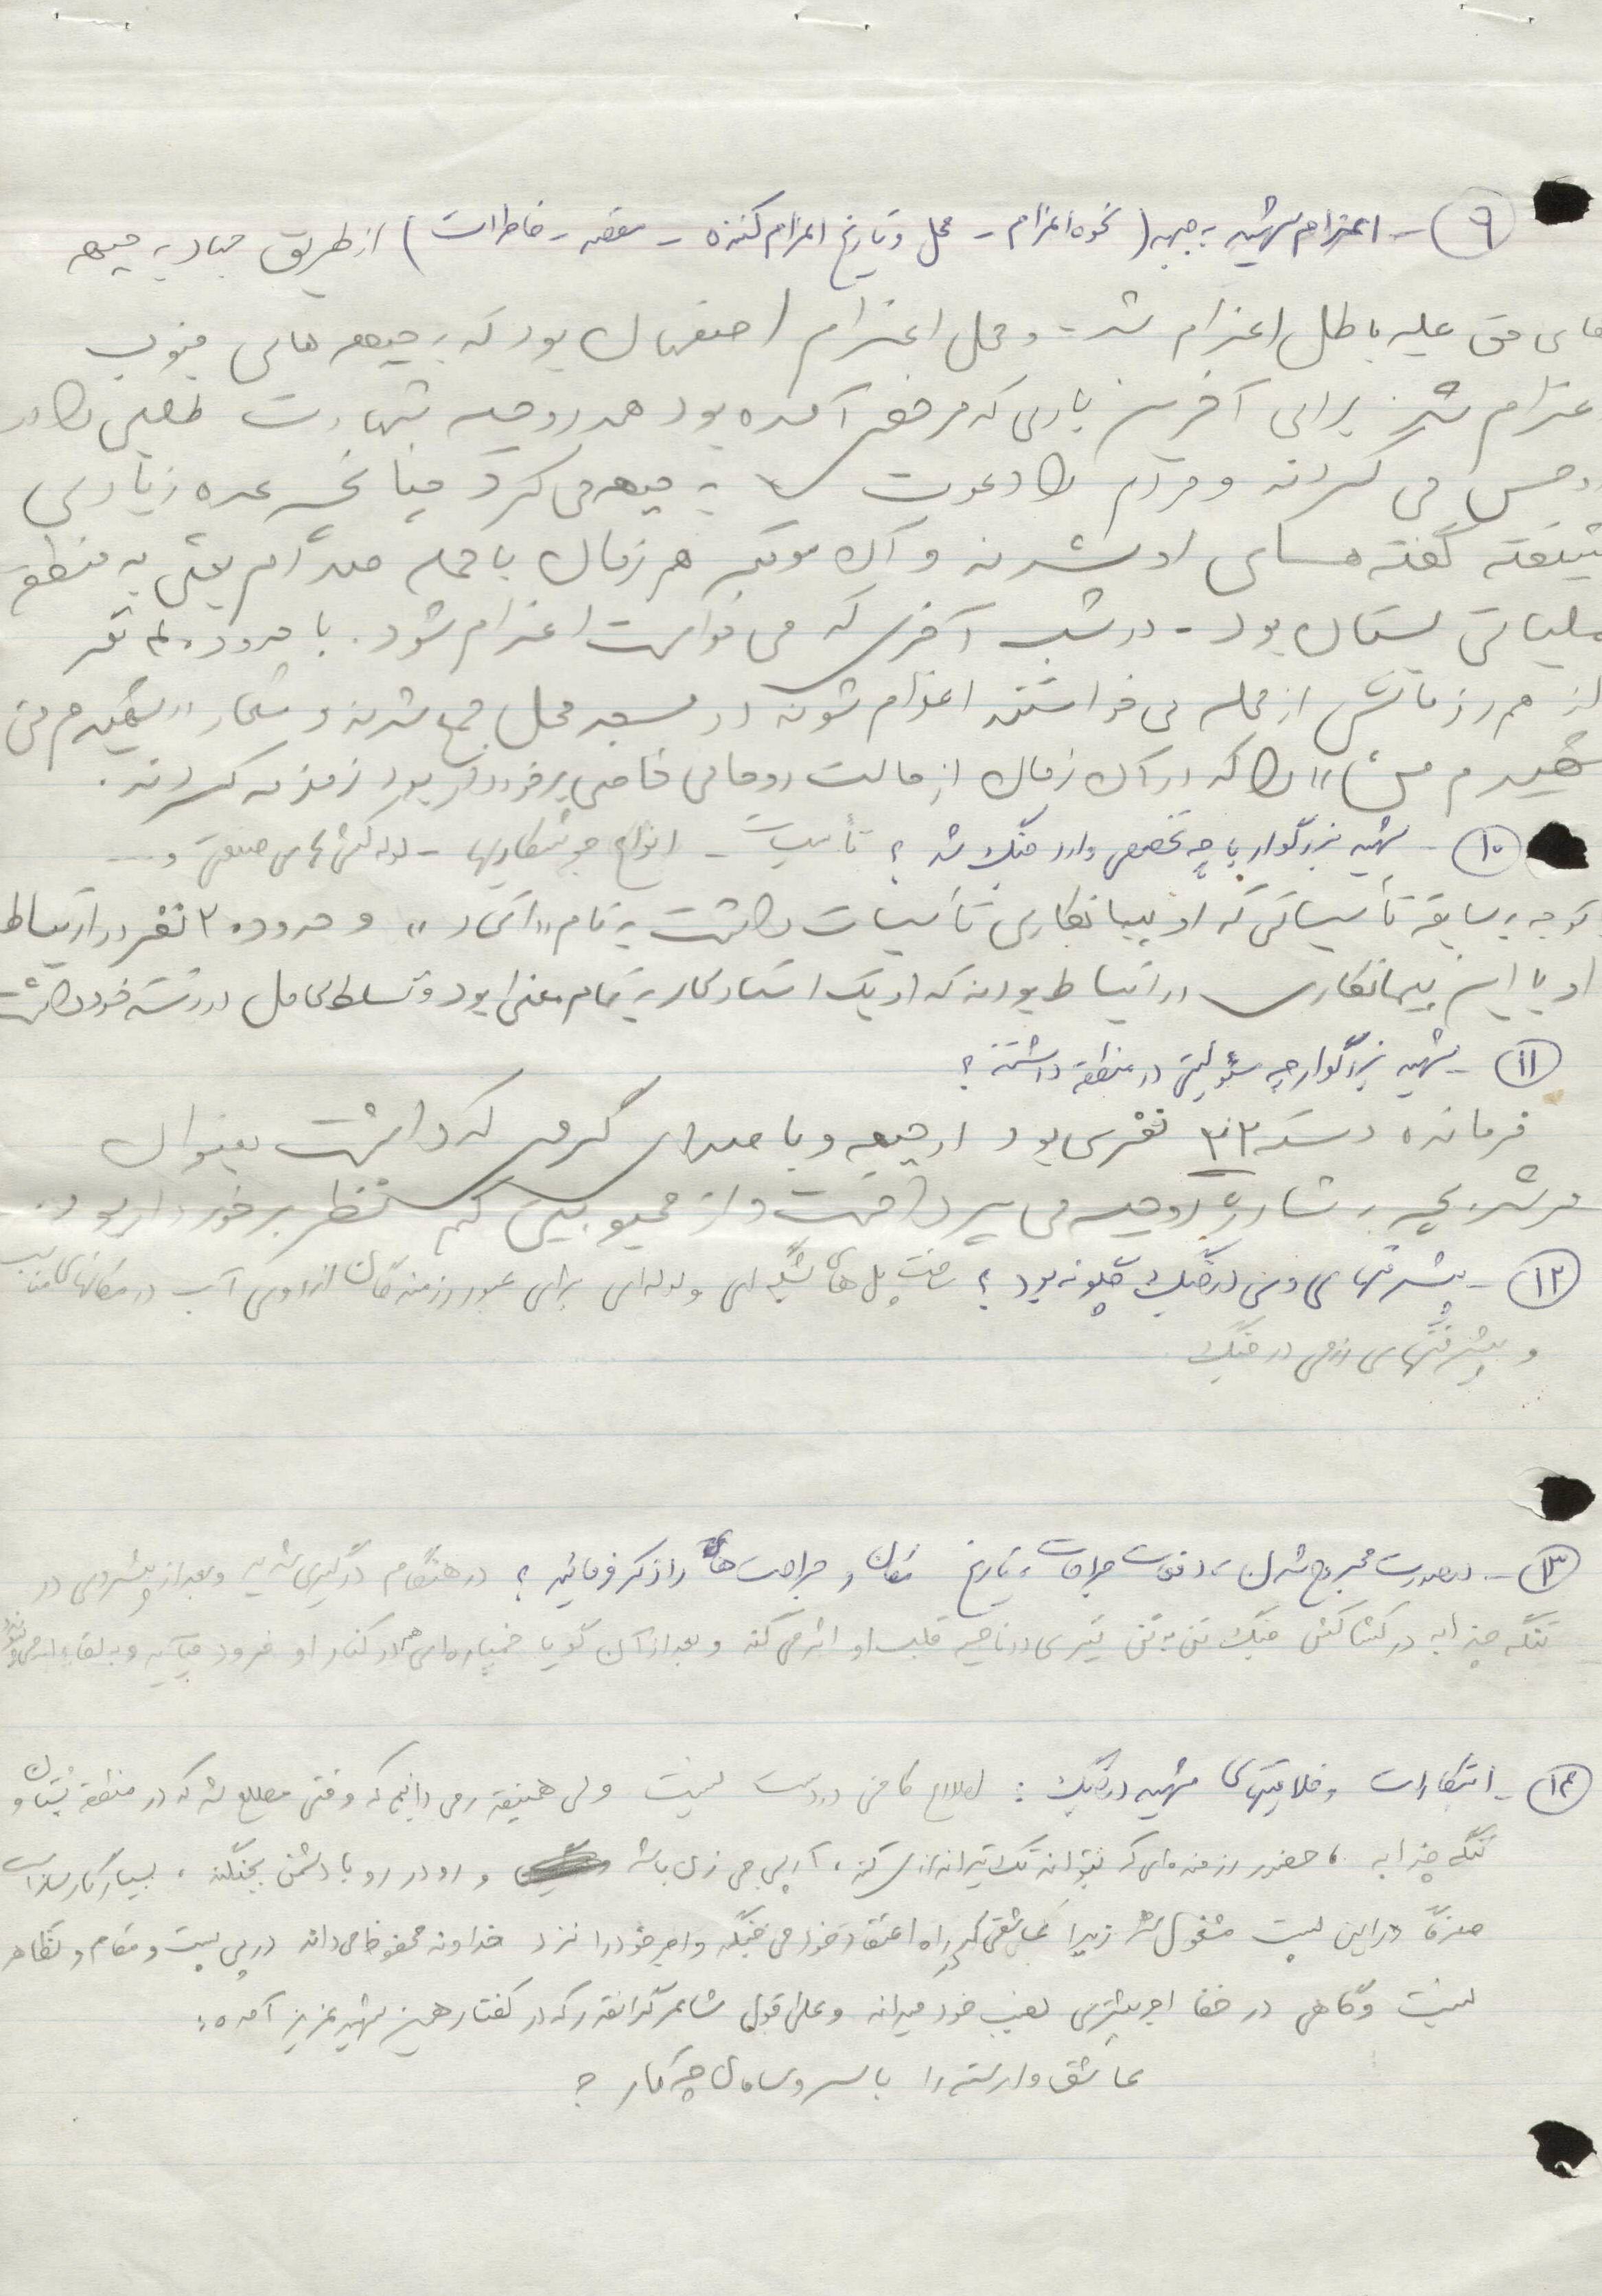 ۹ - اعزام شهید به جبهه ( نحوه اعزام - محل و تاریخ اعزام کننده - مقصد - خاطرات ) از طریق جهاد به جبهه
های حق علیه باطل اعزام شد - و محل اعزام اصفهان بود که به جبهه های جنوب
اعزام شد برای آخرین باری که مرخصی آمده بود همه روحیه شهادت طلبی را در
او حس می کردند و مردم را دعوت به جبهه می کرد چنانچه عده زیادی
شیفته گفته های او شدند و آن موقع هم زمان با حمله صدام یعثی به منطقه
عملیاتی بستان بود - در شب آخری که می خواست اعزام شود . با حدود ۴۰ نفر
از هم رزمانش از محله می خواستند اعزام شوند در مسجد محل جمع شدند و شعار " شهیدم من
شهیدم من " را که در آن زمان از حالت روحانی خاصی برخوردار بود زمزمه کردند .
۱۰ - شهید بزرگوار با چه تخصصی وارد جنگ شد ؟ تأسیسات - انواع جوشکاریها - لوله کشی های صنعتی و ...
با توجه به سابقه تأسیساتی که او پیمانکاری تأسیسات داشت به نام " " و حدود ۲۰ نفر در ارتباط
او با این پیمانکاری در ارتباط بودند که او یک استاد کار به تمام معنی بود و تسلط کامل در رشته خود داشت
۱۱ - شهید بزرگوار چه مسئولیتی در منطقه داشتند ؟
فرمانده دسته ۲۲ نفری بود در جبهه و با صدای گرمی که داشت بعنوان
مرثیه به روحیه می پرداخت و از محبوبیت کم نظیر برخوردار بود .
۱۲ - پیشرفتهای وی در جنگ چگونه بود ؟ ساخت پل های بشکه ای و لوله ای برای عبور رزمندگان از روی آب در مکانهای مناسب
و پیشرفتهای رزمی در جنگ
۱۳ - در صورت مجروح شدن ، دفعات جراحات ، تاریخ مکان و جراحت های را ذکر فرمائید ؟ در هنگام درگیری شدید و بعد از پیشروی در
تنگه چزابه در کشاکش جنگ تن به تن تیری در ناحیه قلب او اثر می کند و بعد از آن گویا خمپاره ای هم در کنار او فرود میآید و به لقاء الله می پیوندد
۱۴ - ابتکارات و خلاقیتهای شهید در جنگ : اطلاع کافی در دست نیست ولی همینقدر می دانیم که وقتی مطلع شد که در منطقه بستان و
تنگه چزابه ، حضور رزمنده ای که بتواند تک تیراندازی کند ، آرپی جی زن باشد و رو در رو با دشمن بجنگد ، بسیار کارساز است
صرفاً در این پست مشغول شد زیرا عاشقی که در راه اعتقاد خود می جنگد و اجر خود را نزد خداوند محفوظ می داند در پی پست و مقام و تظاهر
نیست و گاهی در خفا اجر بیشتری نصیب خود میداند و علی قول شاعر گرانقدر که در گفتار همین شهید عزیز آمده :
عاشق وارسته را با سر و سامان چه کار ؟